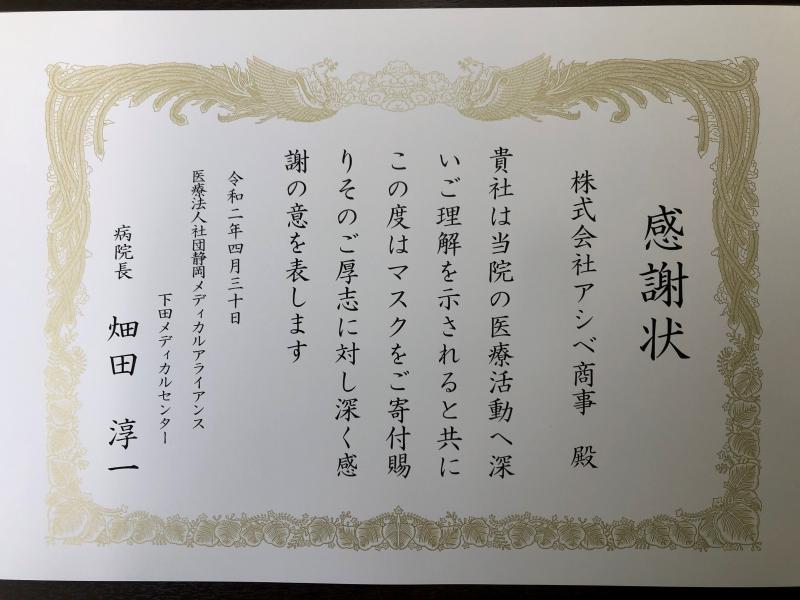 感謝状
株式会社アシベ商事 殿
貴社は当院の医療活動へ深
いご理解を示されると共に
この度はマスクをご寄付賜
りそのご厚志に対し深く感
謝の意を表します
令和二年四月三十日
医療法人社団静岡メディカルアライアンス
下田メディカルセンター
病院長 畑田 淳一